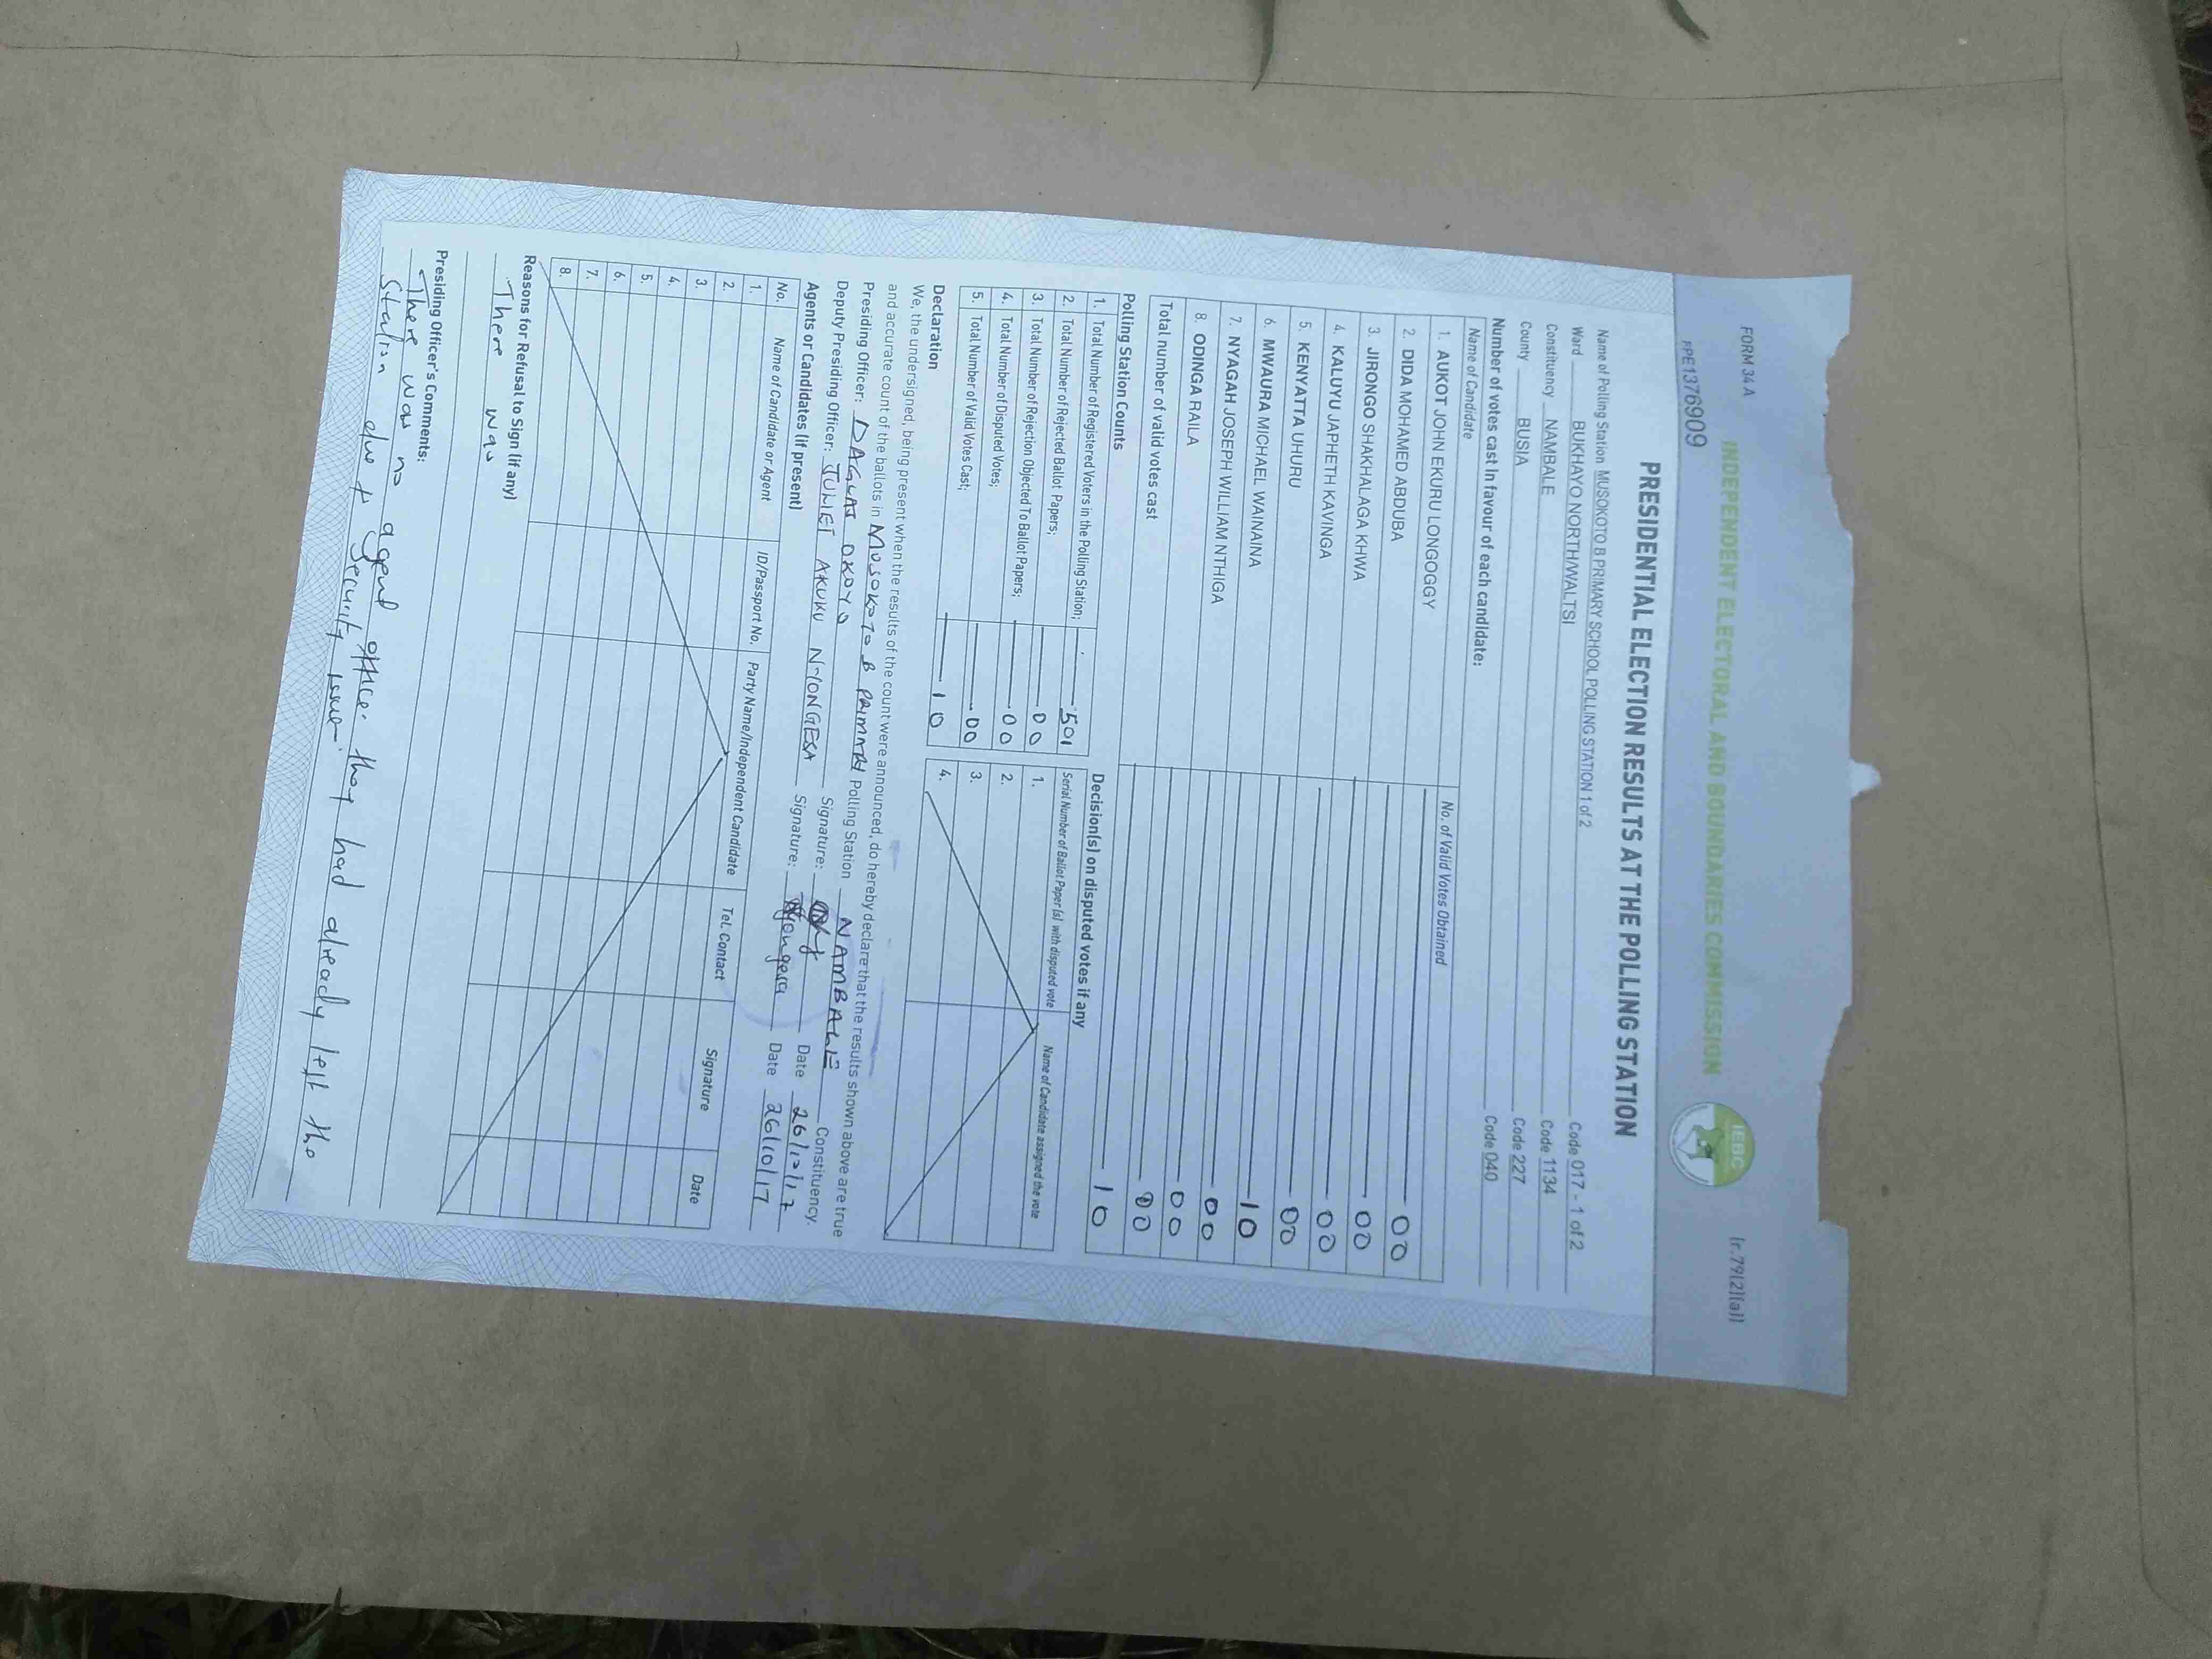 FORM 34 A
(r.79(2)(a))
INDEPENDENT ELECTORAL AND BOUNDARIES COMMISSION
IEBC
PPE1376909
PRESIDENTIAL ELECTION RESULTS AT THE POLLING STATION
Name of Polling Station MUSOKOTO B PRIMARY SCHOOL POLLING STATION 1 of 2 Code 017 - 1 of 2
Ward BUKHAYO NORTH/WALTSI Code 1134
Constituency NAMBALE Code 227
County BUSIA Code 040
Number of votes cast In favour of each candidate:
Name of Candidate No. of Valid Votes Obtained
1. AUKOT JOHN EKURU LONGOGGY 00
2. DIDA MOHAMED ABDUBA 00
3. JIRONGO SHAKHALAGA KHWA 00
4. KALUYU JAPHETH KAVINGA 00
5. KENYATTA UHURU 10
6. MWAURA MICHAEL WAINAINA 00
7. NYAGAH JOSEPH WILLIAM NTHIGA 00
8. ODINGA RAILA 00
Total number of valid votes cast 10
Polling Station Counts
1. Total Number of Registered Voters in the Polling Station; 501
2. Total Number of Rejected Ballot Papers; 00
3. Total Number of Rejection Objected To Ballot Papers; 00
4. Total Number of Disputed Votes; 00
5. Total Number of Valid Votes Cast; 10
Decision(s) on disputed votes if any
Serial Number of Ballot Paper (s) with disputed vote Name of Candidate assigned the vote
1.
2.
3.
4.
Declaration
We, the undersigned, being present when the results of the count were announced, do hereby declare that the results shown above are true
and accurate count of the ballots in MUSOKOTO B PRIMARY Polling Station NAMBALE Constituency.
Presiding Officer: DAGLAS OKOYO Signature: Date 26/10/17
Deputy Presiding Officer: JULIET AKUKU N-IONGESA Signature: Njongesa Date 26/10/17
Agents or Candidates (if present)
No. Name of Candidate or Agent ID/Passport No. Party Name/Independent Candidate Tel. Contact Signature Date
1.
2.
3.
4.
5.
6.
7.
8.
Reasons for Refusal to Sign (if any)
There was
Presiding Officer's Comments:
There was no agent office. they had already left the
Station due to Security issue.